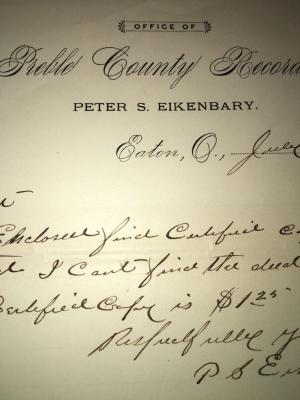 OFFICE OF
Preble County Record
PETER S. EIKENBARY.
Eaton, O., July
Enclosed find Certified c
I Cant find the deed
Certified Copy is $1.25
Respectfully y
P S Ei